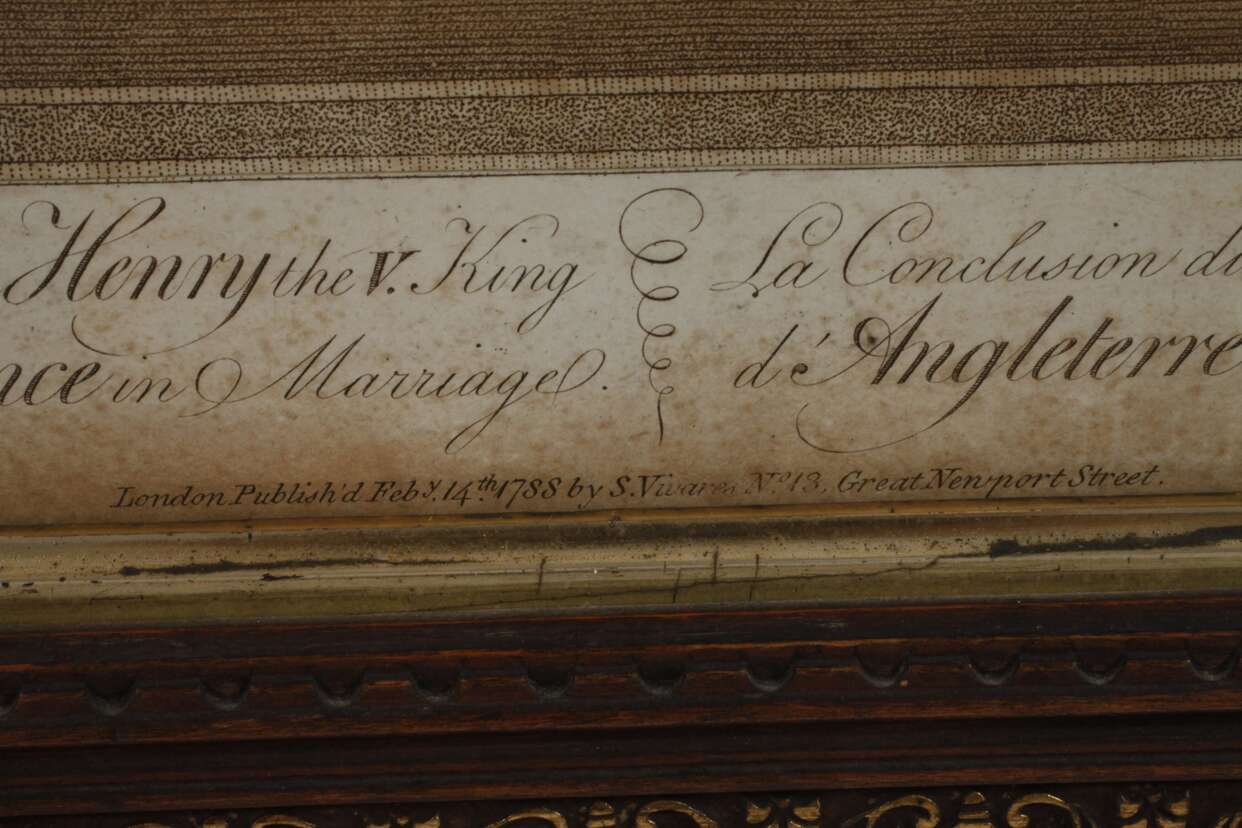 Henry the V. King
in Marriage.
La Conclusion
d'Angleterre
London Publish'd Feby. 14th. 1788 by S. Vivares No. 13, Great Newport Street.